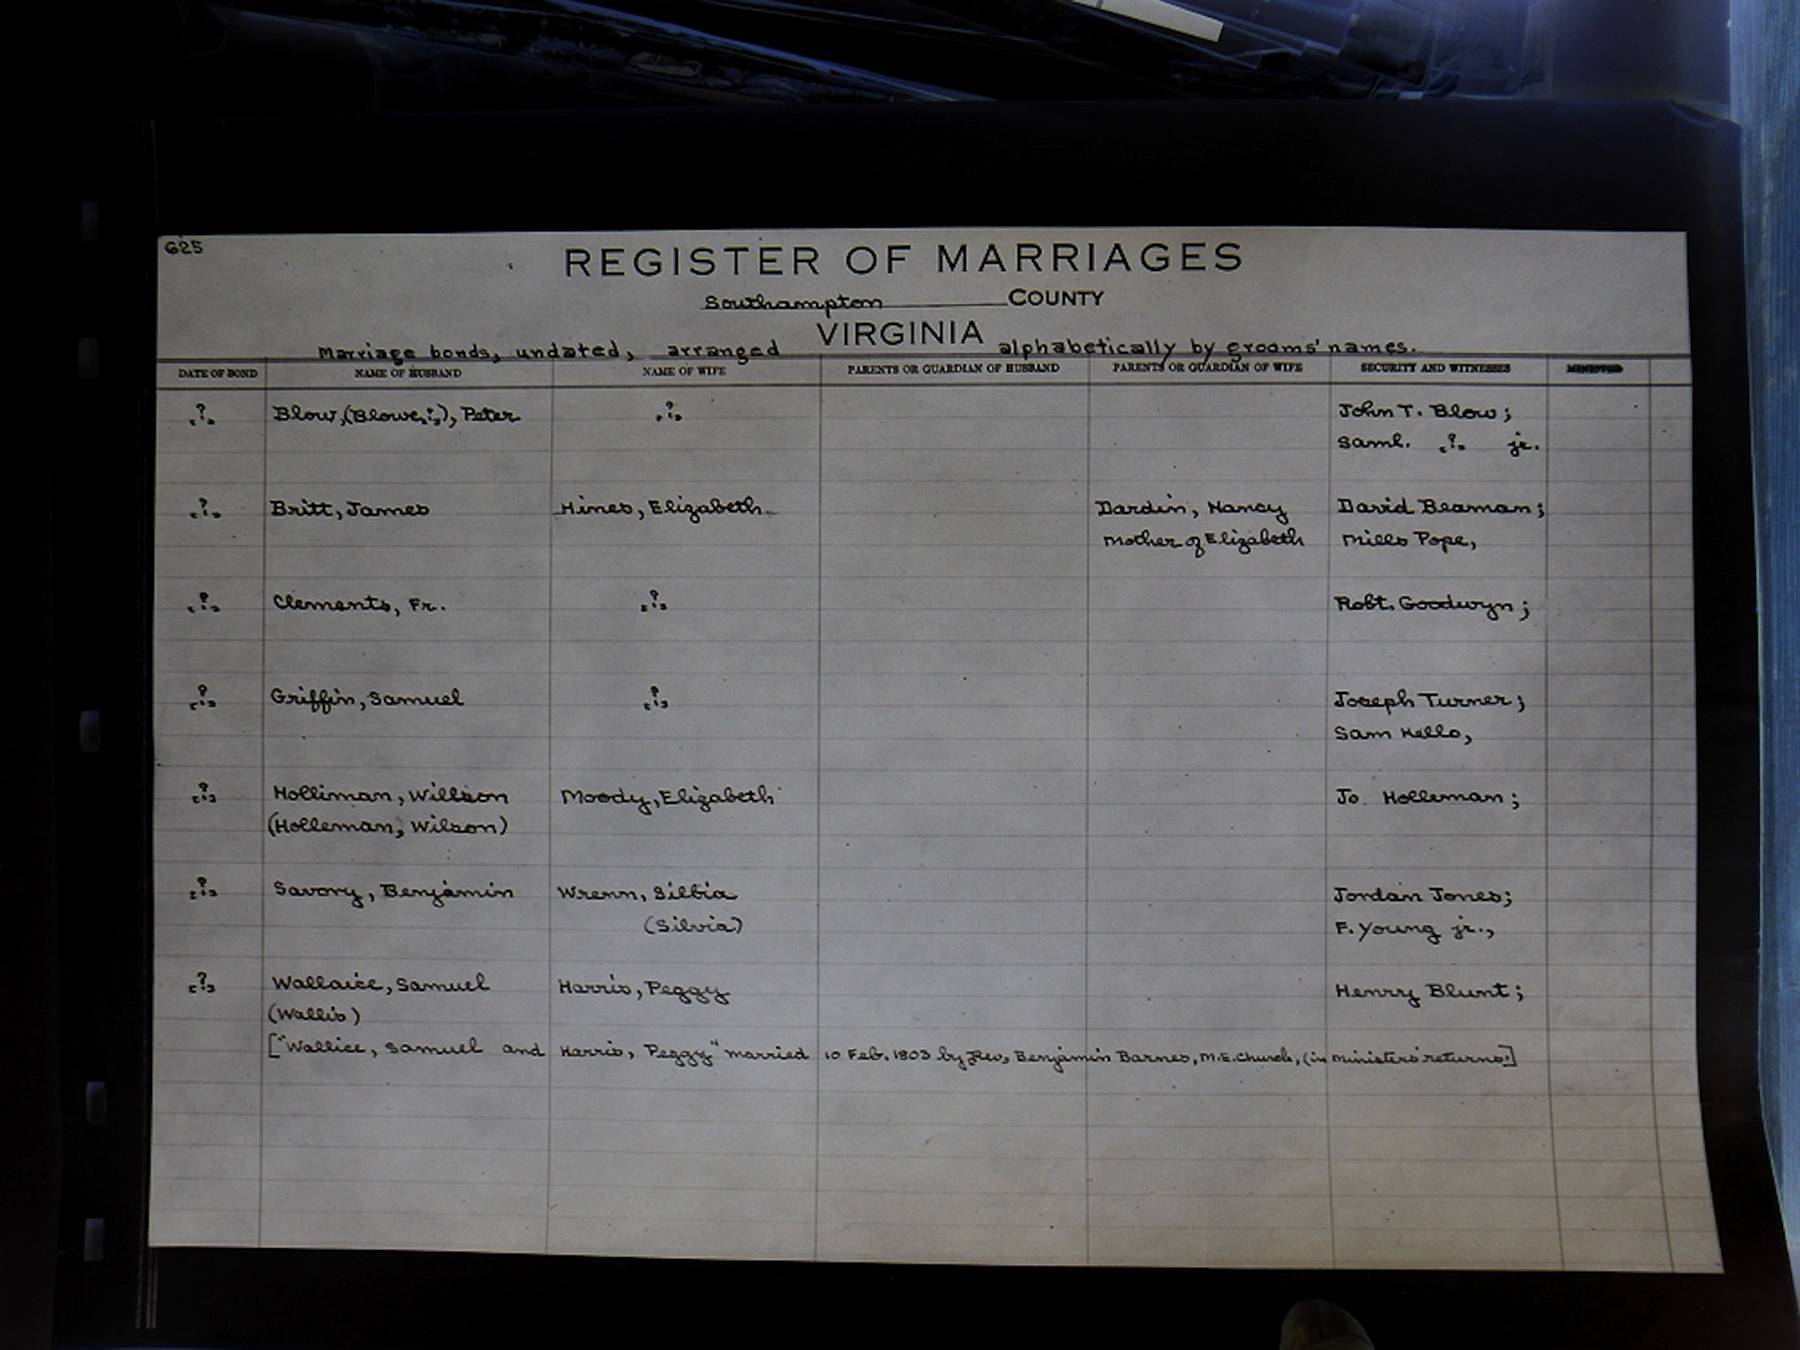 625
REGISTER OF MARRIAGES
Southampton COUNTY
VIRGINIA
Marriage bonds, undated, arranged alphabetically by grooms' names.
DATE OF BOND NAME OF HUSBAND NAME OF WIFE PARENTS OR GUARDIAN OF HUSBAND PARENTS OR GUARDIAN OF WIFE SECURITY AND WITNESSES MINISTER
[?] Blow, (Blowe[?]), Peter [?] John T. Blow;
Saml. [?] jr.
[?] Britt, James Hines, Elizabeth Dardin, Nancy David Beaman;
Mother of Elizabeth Mills Pope,
[?] Clements, Fr. [?] Robt. Goodwyn;
[?] Griffin, Samuel [?] Joseph Turner;
Sam Kello,
[?] Holliman, Willson Moody, Elizabeth Jo. Holleman;
(Holleman, Wilson)
[?] Savory, Benjamin Wrenn, Silbia Jordan Jones;
(Silvia) F. Young jr.,
[?] Wallaice, Samuel Harris, Peggy Henry Blunt;
(Wallis)
["Wallice, Samuel and Harris, Peggy" married 10 Feb. 1803 by Rev. Benjamin Barnes, M.E. Church, (in ministers' returns.]